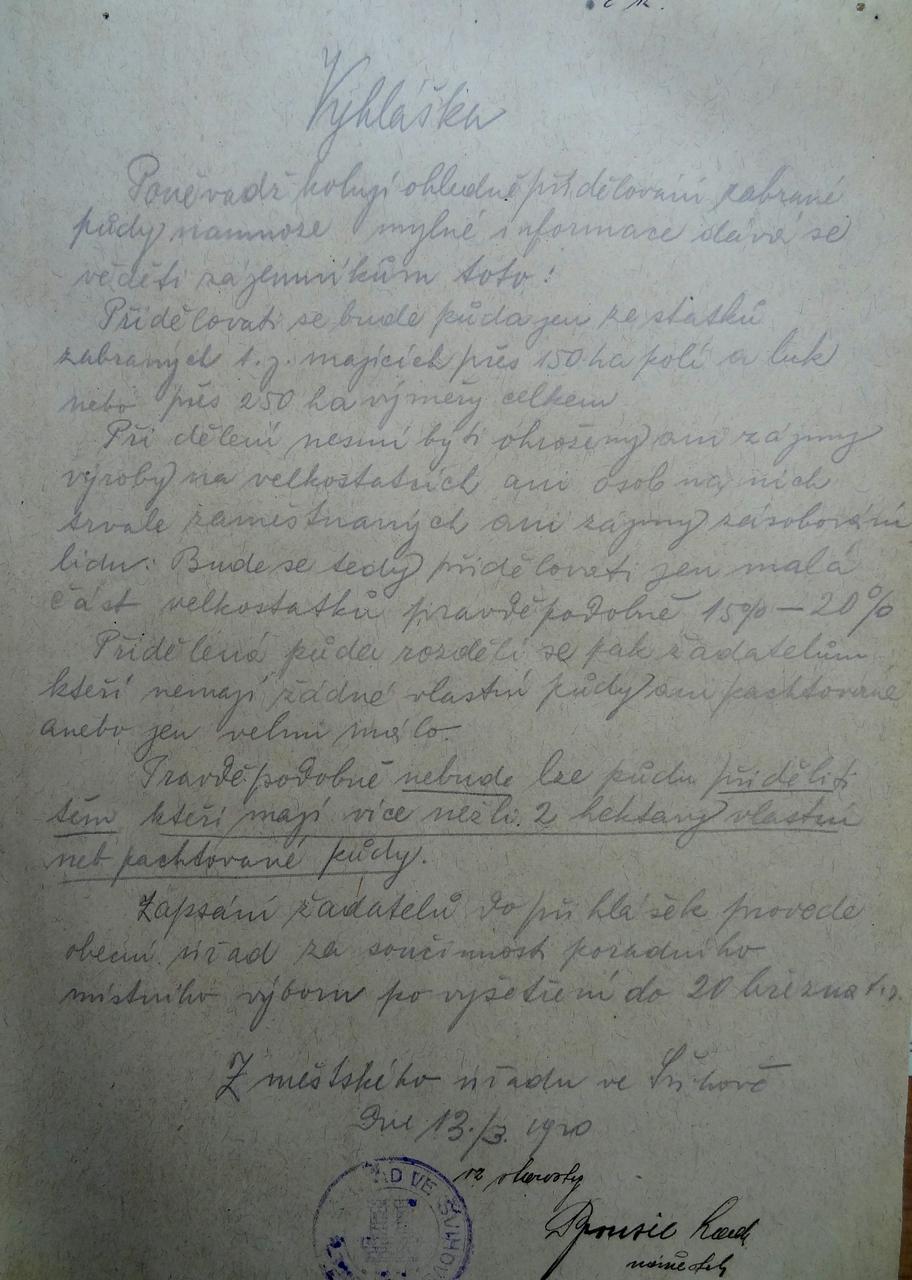 Vyhláška
Poněvadž kolují ohledně přidělování zabrané
půdy namnoze mylné informace dává se
věděti zájemníkům toto:
Přidělovati se bude půda jen ze statků
zabraných t. j. majících přes 150 ha polí a luk
nebo přes 250 ha výměry celkem
Při dělení nesmí býti ohroženy ani zájmy
výroby na velkostatcích ani osob na nich
trvale zaměstnaných ani zájmy zásobování
lidu: Bude se tedy přidělovati jen malá
část velkostatků pravděpodobně 15% – 20%
Přidělená půda rozdělí se pak žadatelům
kteří nemají žádné vlastní půdy ani pachtované
anebo jen velmi málo.
Pravděpodobně nebude lze půdu přiděliti
těm kteří mají více nežli 2 hektary vlastní
neb pachtované půdy.
Zapsání žadatelů do přihlášek provede
obecní úřad za součinnosti poradního
místního výboru po vyšetření do 20 března t.r.
Z městského úřadu ve Švihově
Dne 13./3. 1920
za starosty
náměstek
AD VE ŠVIHOV